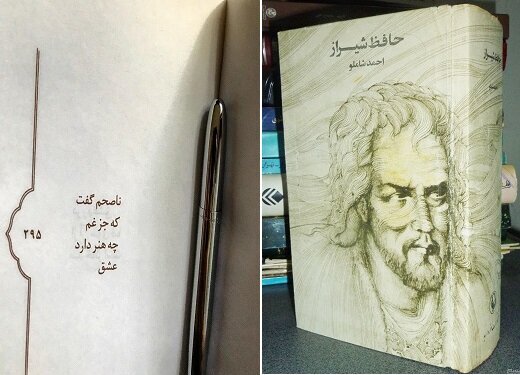 ناصحم گفت
که جز غم
چه هنر دارد
عشق
۲۹۵
حافظ شیراز
احمد شاملو
حافظ شیراز